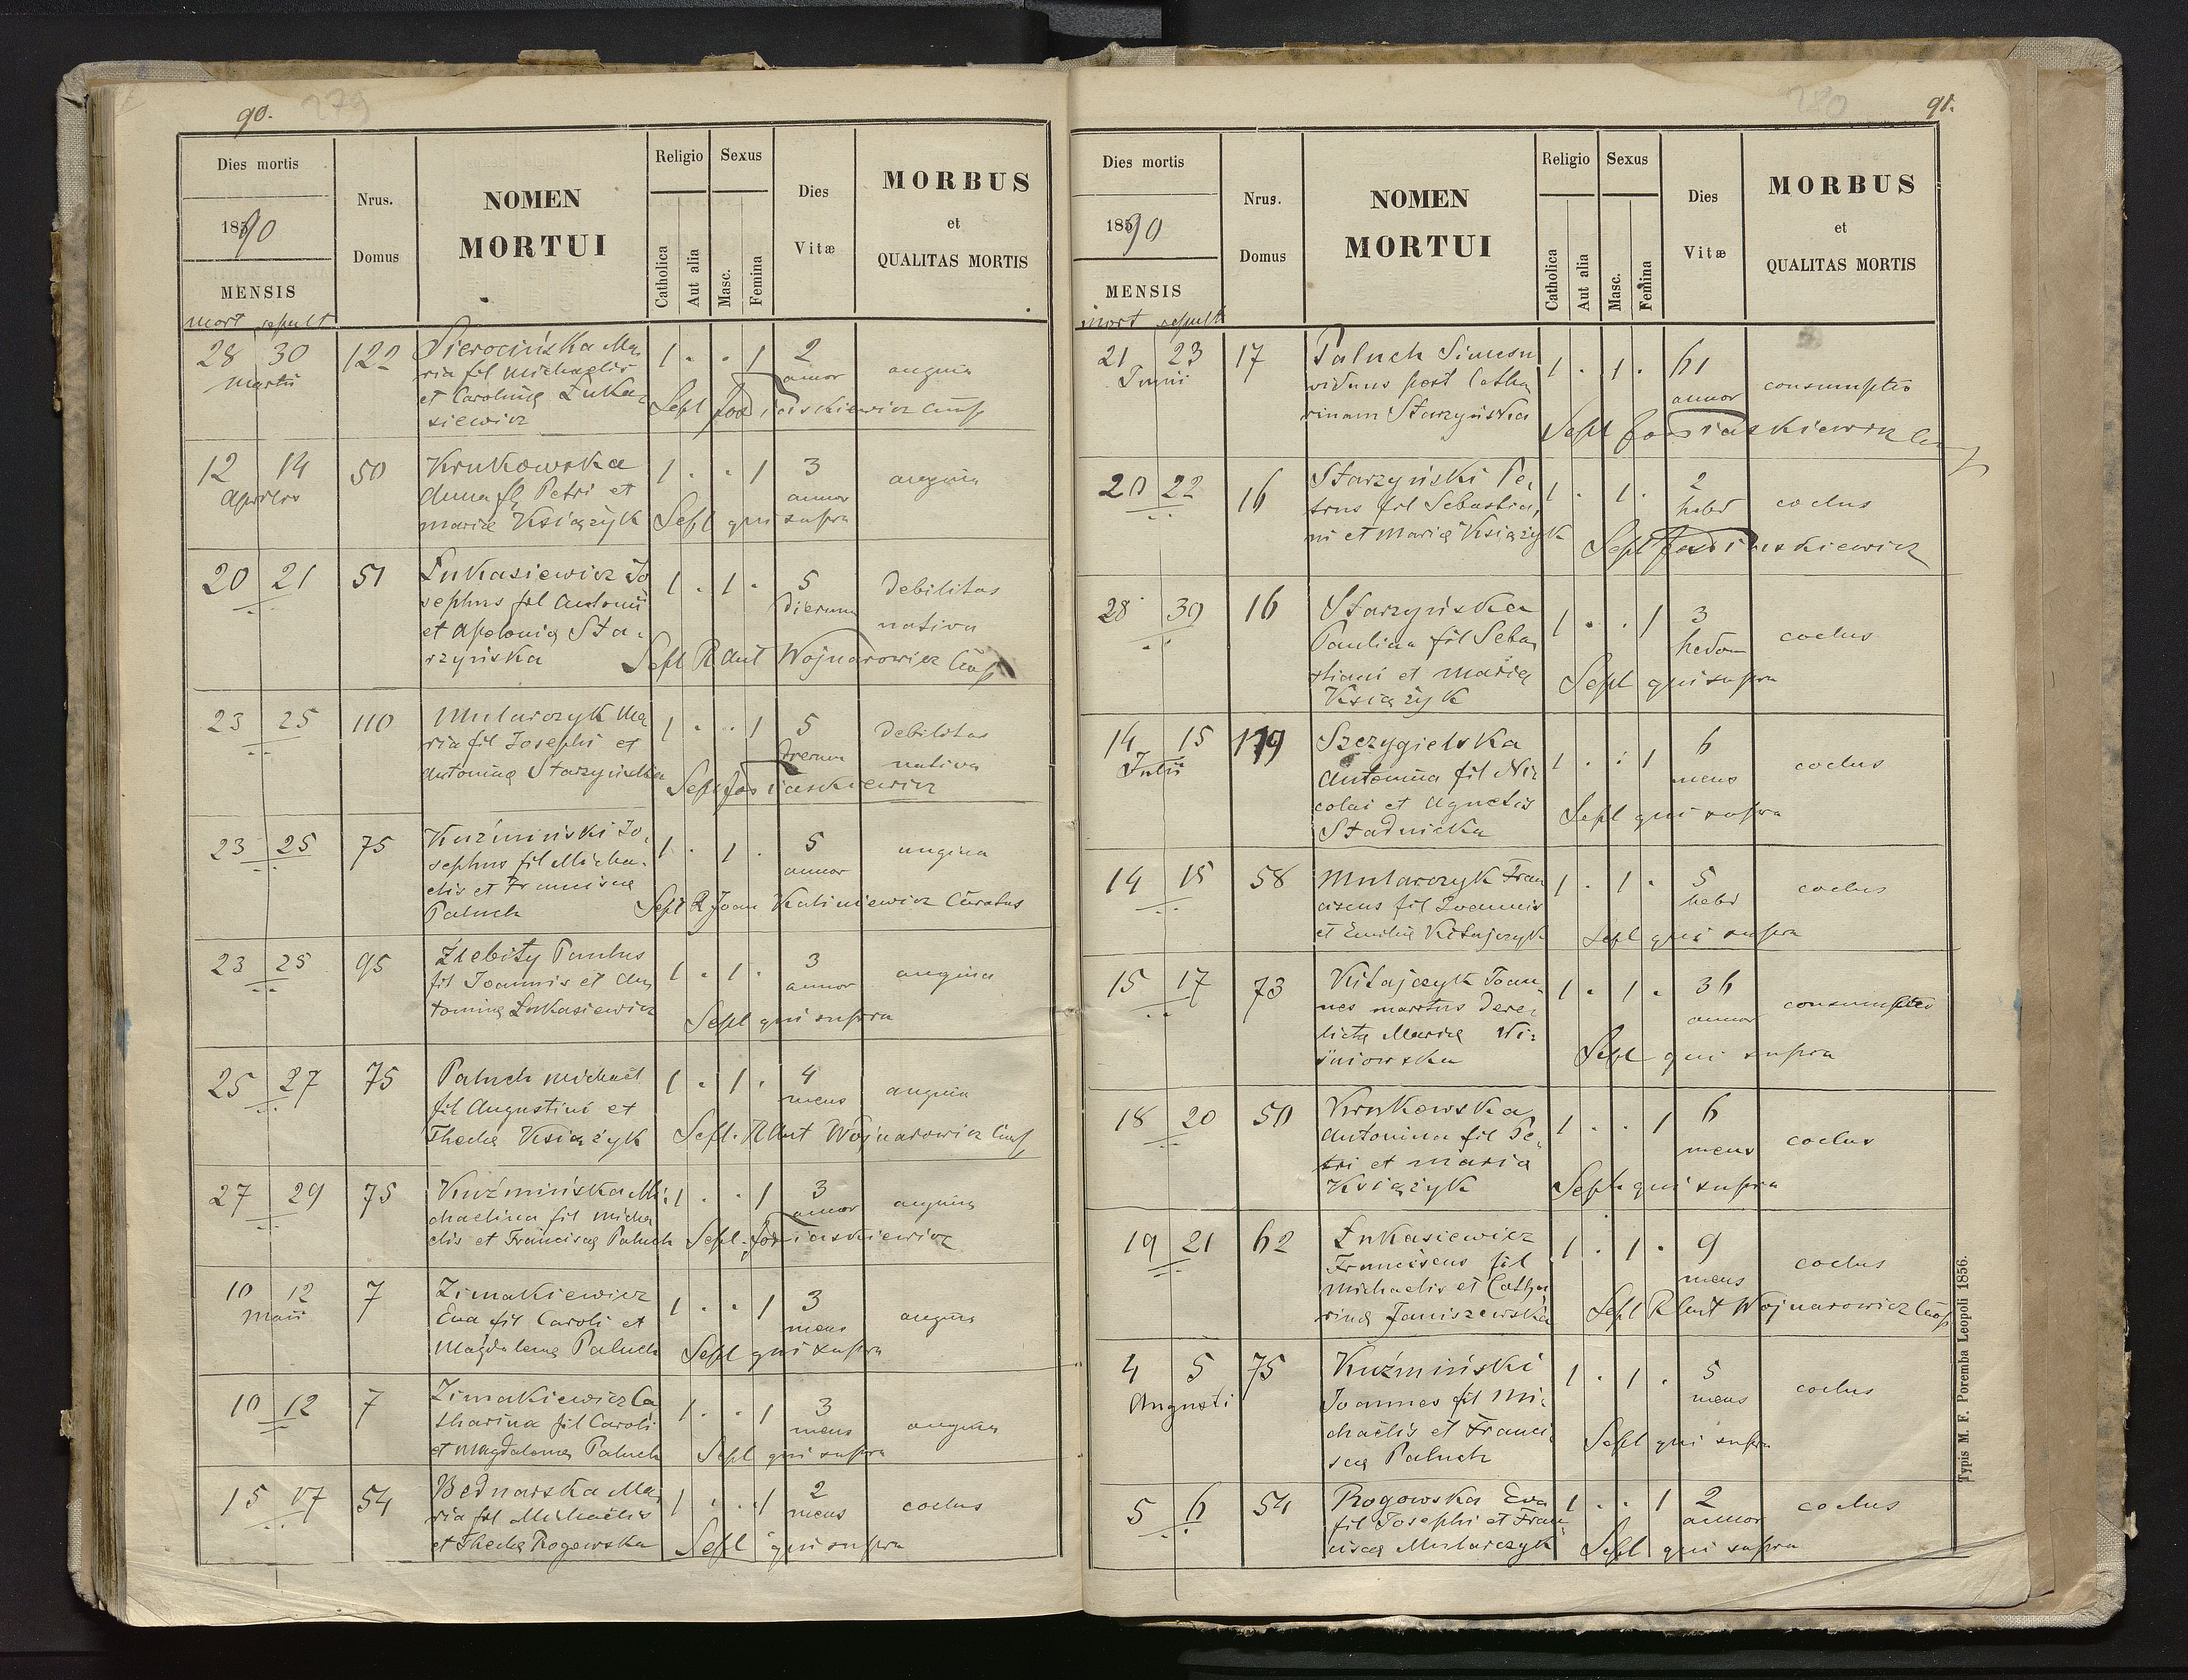 90.
279
Dies mortis
1890
MENSIS
mort sepult
Nrus.
Domus
NOMEN
MORTUI
Religio
Catholica
Aut alia
Sexus
Masc.
Femina
Dies
Vitæ
MORBUS
et
QUALITAS MORTIS
28 30 122 Sierocińska Ma 1 . . 1 2
Martii ria fil Michaelis annor angina
et Carolinę Łuka
siewicz Sepl Jos iaskiewicz
12 14 50 Krukowska 1 . . 1 3 angina
Aprilis Anna fil Petri et annor
Maria Książyk Sepl qui supra
20 21 51 Łukasiewicz Jo 1 . 1 . 5 debilitas
sephus fil Antonii dierum nativa
et Apolonią Sta-
rzyńska Sepl R Ant Wojnarowicz
23 25 110 Mularczyk Ma 1 . . 1 5 debilitas
ria fil Josephi et dierum nativa
Antoninę Starzyńska Sepl Jos iaskiewicz
23 25 75 Kuźmiński Jo, 1 . 1 . 5 angina
sephus fil Micha- annor
elis et Franciscae
Paluch Sepl R Joan Kaliniewicz Curatus
23 25 95 Źrebity Paulus 1 . 1 . 3 angina
fil Joannis et An annor
toninę Łukasiewicz Sepl qui supra
25 27 75 Paluch Michaël 1 . 1 . 4 angina
fil Augustini et mens
Theclę Książyk Sepl. R Ant Wojnarowicz
27 29 75 Kuźmińska Mi: 1 . . 1 3 angina
chaelina fil Micha annor
elis et Franciscą Paluch Sepl. Jos iaskiewicz
10 12 7 Zimakiewicz 1 . . 1 3 angina
Maii Eva fil Caroli et mens
Magdalenę Paluch Sepl qui supra
10 12 7 Zimakiewicz Ca 1 . . 1 3 angina
tharina fil Caroli mens
et Magdalenę Paluch Sepl qui supra
15 17 54 Bednarska Ma, 1 . . 1 2 coclus
ria fil Michaëlis mens
et Theclę Rogowska Sepl qui supra
91.
280
Dies mortis
1890
MENSIS
mort sepult
Nrus.
Domus
NOMEN
MORTUI
Religio
Catholica
Aut alia
Sexus
Masc.
Femina
Dies
Vitæ
MORBUS
et
QUALITAS MORTIS
21 23 17 Paluch Simeon 1 . 1 . 61 consumptio
Junii viduus post Catha annor
rinam Starzyńska Sepl Jos iaskiewicz
20 22 16 Starzyński Pe, 1 . 1 . 2 coclus
trus fil Sebastia, hebd
ni et Marią Książyk Sepl Jos iaskiewicz
28 30 16 Starzyńska 1 . . 1 3 coclus
Paulina fil Seba hedom
stiani et Marią Sepl qui supra
Książyk
14 15 119 Szczygielska 1 . . 1 6 coclus
Julii Antonina fil Ni: mens
colai et Agnetis Sepl qui supra
Stadnicka
14 15 58 Mularczyk Fran 1 . 1 . 5 coclus
ciscus fil Joannis hebd
et Emilię Kitajczyk Sepl qui supra
15 17 73 Kitajczyk Joan, 1 . 1 . 36 consumptio
nes maritus dere: annor
lictę Marię Wi: Sepl qui supra
śniowska
18 20 50 Krukowska 1 . . 1 6 coclus
Antonina fil Pe, mens
tri et Maria Sepl qui supra
Książyk
19 21 62 Łukasiewicz 1 . 1 . 9 coclus
Franciscus fil mens
Michaelis et Catha,
rinę Janiszewska Sepl R Ant Wojnarowicz
4 5 75 Kuźmiński 1 . 1 . 5 coclus
Augusti Joannes fil Mi: mens
chaëlis et Franci, Sepl qui supra
scą Paluch
5 6 54 Rogowska Eva 1 . . 1 2 coclus
fil Josephi et Fran annor
ciscą Mularczyk Sepl qui supra
Typis M. F. Poremba Leopoli 1856.